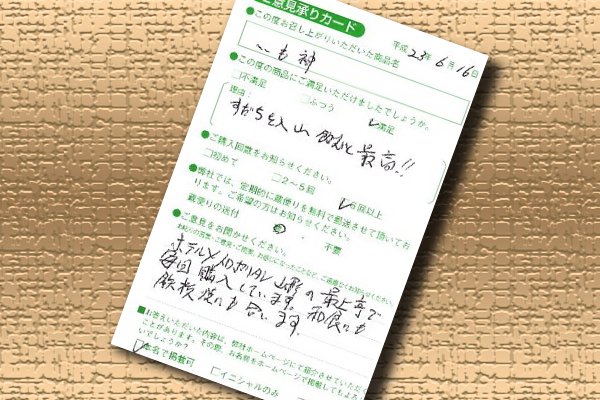 ご意見承りカード
平成23年6月16日
●この度お召し上がりいただいた商品名
いも神
●この度の商品にご満足いただけましたでしょうか。
□不満足 □ふつう ☑満足
理由：
すがちを入山 飲むと最高!!
●ご購入回数をお知らせください。
□初めて □2～5回 ☑6回以上
●弊社では、定期的に蔵便りを無料で郵送させて頂いてお
ります。ご希望の方はお知らせください。
蔵便りの送付 ・ 不要
●ご意見をお聞かせください。
ホテルメトロポリタン山形の最上亭で
毎回購入しています。和食にも
鉄板焼にも合います。
■お答えいただいた内容は、弊社ホームページにて紹介させていただ
ことがあります。その際、お名前をホームページで掲載してもよろ
いでしょうか？
☑本名で掲載可 □イニシャルのみ